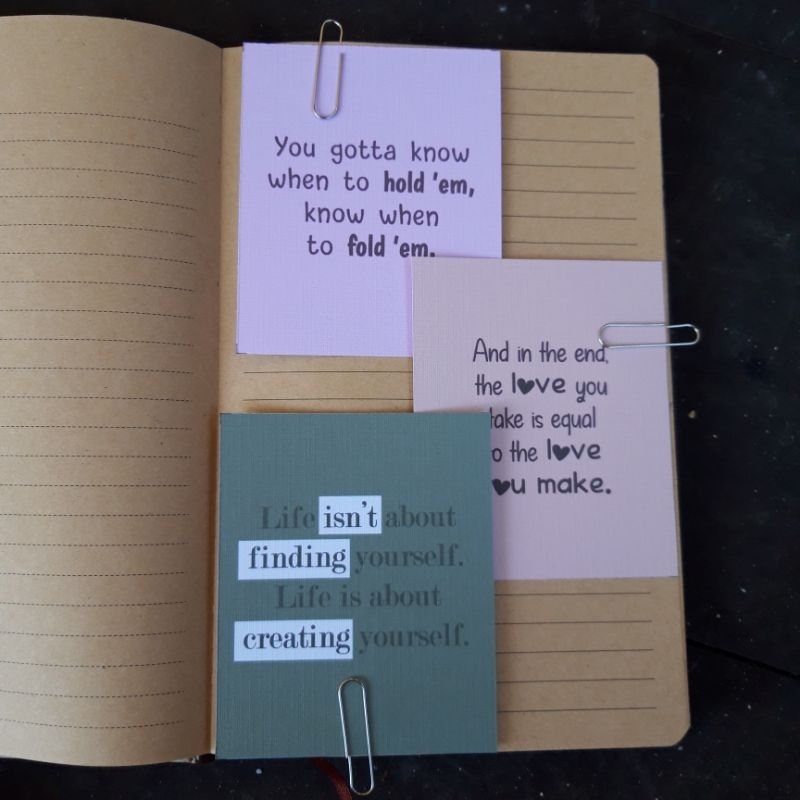 You gotta know
when to hold 'em,
know when
to fold 'em.
And in the end,
the love you
take is equal
to the love
you make.
Life isn't about
finding yourself.
Life is about
creating yourself.